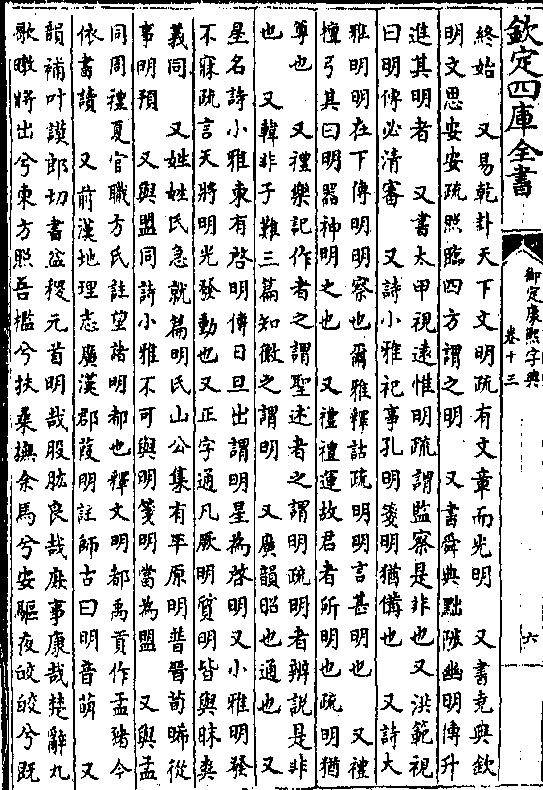 欽定四庫全書
御定康熙字典
卷十三
六
終始　又易乾卦天下文明疏有文章而光明　又書堯典欽
明文思安安疏照臨四方謂之明　又書舜典黜陟幽明傳升
進其明者　又書太甲視遠惟明疏謂監察是非也又洪範視
曰明傳必清審　又詩小雅祀事孔明箋明猶備也　又詩大
雅明明在下傳明明察也爾雅釋詁疏明明言甚明也　又禮
檀弓其曰明器神明之也　又禮禮運故君者所明也疏明猶
尊也　又禮樂記作者之謂聖述者之謂明疏明者辨說是非
也　又韓非子難三篇知微之謂明　又廣韻昭也通也　又
星名詩小雅東有啓明傳日旦出謂明星為啓明又小雅明發
不寐疏言天將明光發動也又正字通凡厥明質明皆與昧爽
義同　又姓姓氏急就篇明氏山公集有平原明普晉荀晞從
事明預　又與盟同詩小雅不可與明箋明當為盟　又與孟
同周禮夏官職方氏註望諸明都也釋文明都禹貢作孟豬今
依書讀　又前漢地理志廣漢郡葭明註師古曰明音萌　又
韻補叶謨郎切書益稷元首明哉股肱良哉庶事康哉楚辭九
歌暾將出兮東方照吾檻兮扶桑撫余馬兮安驅夜皎皎兮既